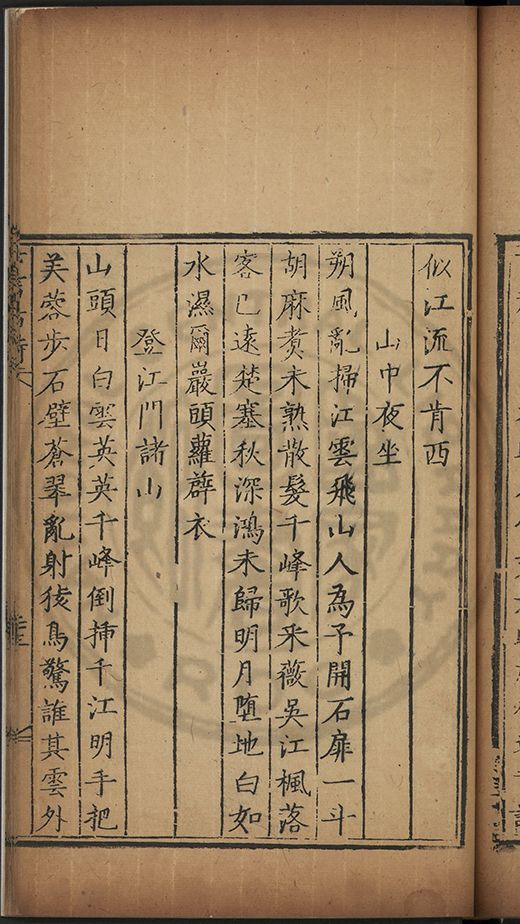 似江流不肯西
山中夜坐
朔風亂掃江雲飛山人為予開石扉一斗
胡麻煑未熟散髮千峰歌采薇吳江楓落
客已遠楚塞秋深鴻未歸明月墮地白如
水濕爾巖頭蘿薜衣
登江門諸山
山頭日白雲英英千峰倒揷千江明手把
芙蓉步石壁蒼翠亂射猿鳥驚誰其雲外